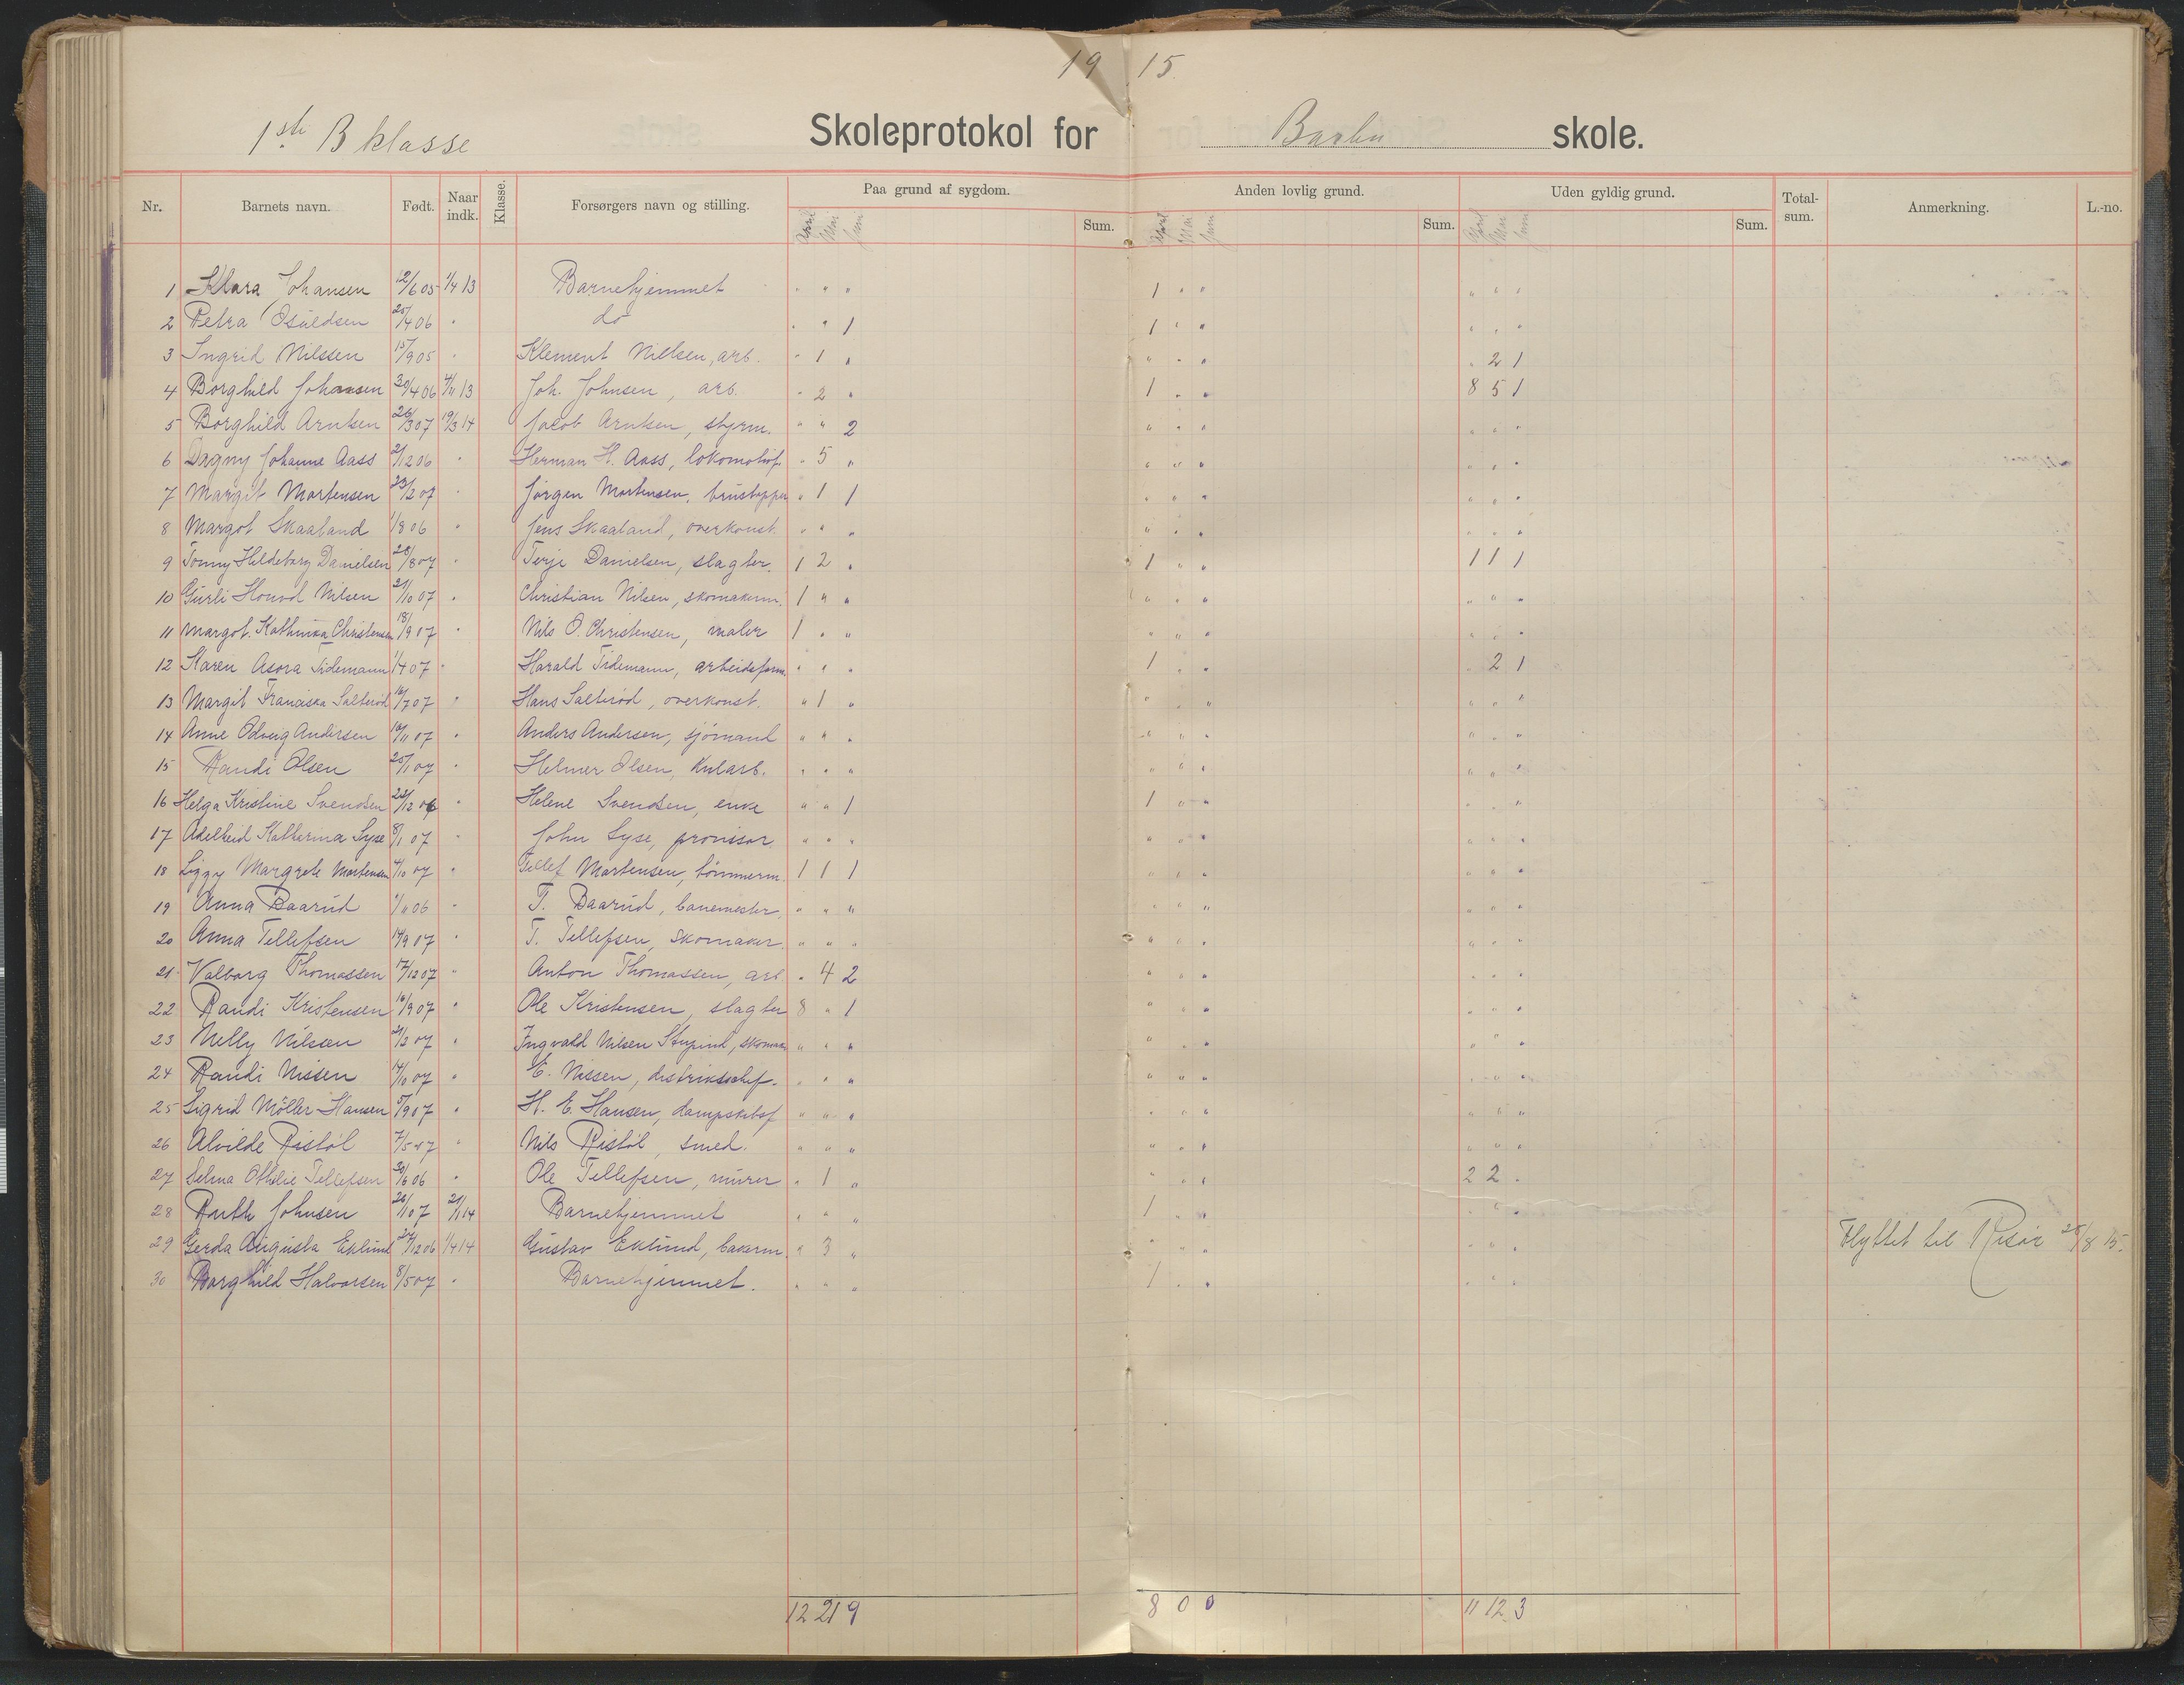 19 15
1ste B klasse Skoleprotokol for Barbu skole.
Nr. Barnets navn. Født. Naar indk. Klasse. Forsørgers navn og stilling. Paa grund af sygdom. Anden lovlig grund. Uden gyldig grund. Total-sum. Anmerkning. L.-no.
April Mai Juni Sum. April Mai Juni Sum. April Mai Juni Sum.
1 Klara Johansen 12/6 05 1/4 13 Barnehjemmet " " " 1 " " " " "
2 Petra Osuldsen 25/4 06 " do " " 1 1 " " " " "
3 Ingrid Nilssen 15/9 05 " Klement Nielsen, arb. " 1 " " " " " 2 1
4 Borghild Johansen 30/4 06 4/11 13 Joh. Johnsen, arb. " 2 " 1 " " 8 5 1
5 Borghild Arntsen 26/3 07 19/3 14 Jacob Arntsen, styrm. " " 2 " " " " " "
6 Dagny Johanne Aass 2/12 06 " Herman H. Aass, lokomotivf. " 5 " " " " " " "
7 Margit Mortensen 23/2 07 " Jørgen Mortensen, " 1 1 " " " " " "
8 Margot Skaaland 1/8 06 " Jens Skaaland, overkonst. " " " " " " " " "
9 Tonny Hildeborg Danielsen 28/8 07 " Terje Danielsen, slagter. 1 2 " 1 " " 1 1 1
10 Gurli Nilsen 21/10 07 " Christian Nilsen, skomakerm. 1 " " " " " " " "
11 Margot Kathinka Christensen 18/9 07 " Nils O. Christensen, maler 1 " " " " " " " "
12 Karen Asora Tidemann 1/4 07 " Harald Tidemann, arbeidsform. " " " 1 " " " 2 1
13 Margit Franciska Salterød 16/7 07 " Hans Salterød, overkonst. " 1 " " " " " " "
14 Anne Odveig Andersen 10/11 07 " Anders Andersen, sjømand " " " " " " " " "
15 Randi Olsen 25/1 07 " Helmer Olsen, kularb. " " " " " " " " "
16 Helga Kristine Svendsen 22/12 06 " Helene Svendsen, enke " " 1 1 " " " " "
17 Adelheid Katherina Syse 8/1 07 " John Syse, provisor " " " " " " " " "
18 Liggy Margrete Mortensen 4/10 07 " Tellef Mortensen, tømmerm. 1 1 1 " " " " " "
19 Anna Baarud 1/11 06 " T. Baarud, banemester. " " " " " " " " "
20 Anna Tellefsen 14/9 07 " T. Tellefsen, skomaker. " " " " " " " " "
21 Valborg Thomassen 17/12 07 " Anton Thomassen, arb " 4 2 " " " " " "
22 Randi Kristensen 16/9 07 " Ole Kristensen, slagter 8 " 1 " " " " " "
23 Nelly Nilsen 21/2 07 " Ingvald Nilsen, skomak. " " " " " " " " "
24 Randi Nissen 14/10 07 " E. Nissen, distriktschef. " " " " " " " " "
25 Sigrid Möller Hansen 5/9 07 " H. E. Hansen, dampskibsf " " " " " " " " "
26 Alvilde Ristöl 7/5 07 " Nils Ristöl, smed. " " " " " " " " "
27 Selma Othilie Tellefsen 30/6 06 " Ole Tellefsen, murer " 1 " " " " 2 2 "
28 Ruth Johnsen 26/1 07 21/1 14 Barnehjemmet " " " 1 " " " " "
29 Gerda Augusta Eklund 24/12 06 1/4 14 Gustav Eklund, bakerm. " 3 " " " " " " " Flyttet til Risør 25/8 15.
30 Borghild Halvorsen 8/5 07 " Barnehjemmet. " " " 1 " " " " "
12 21 9 8 0 0 11 12 3